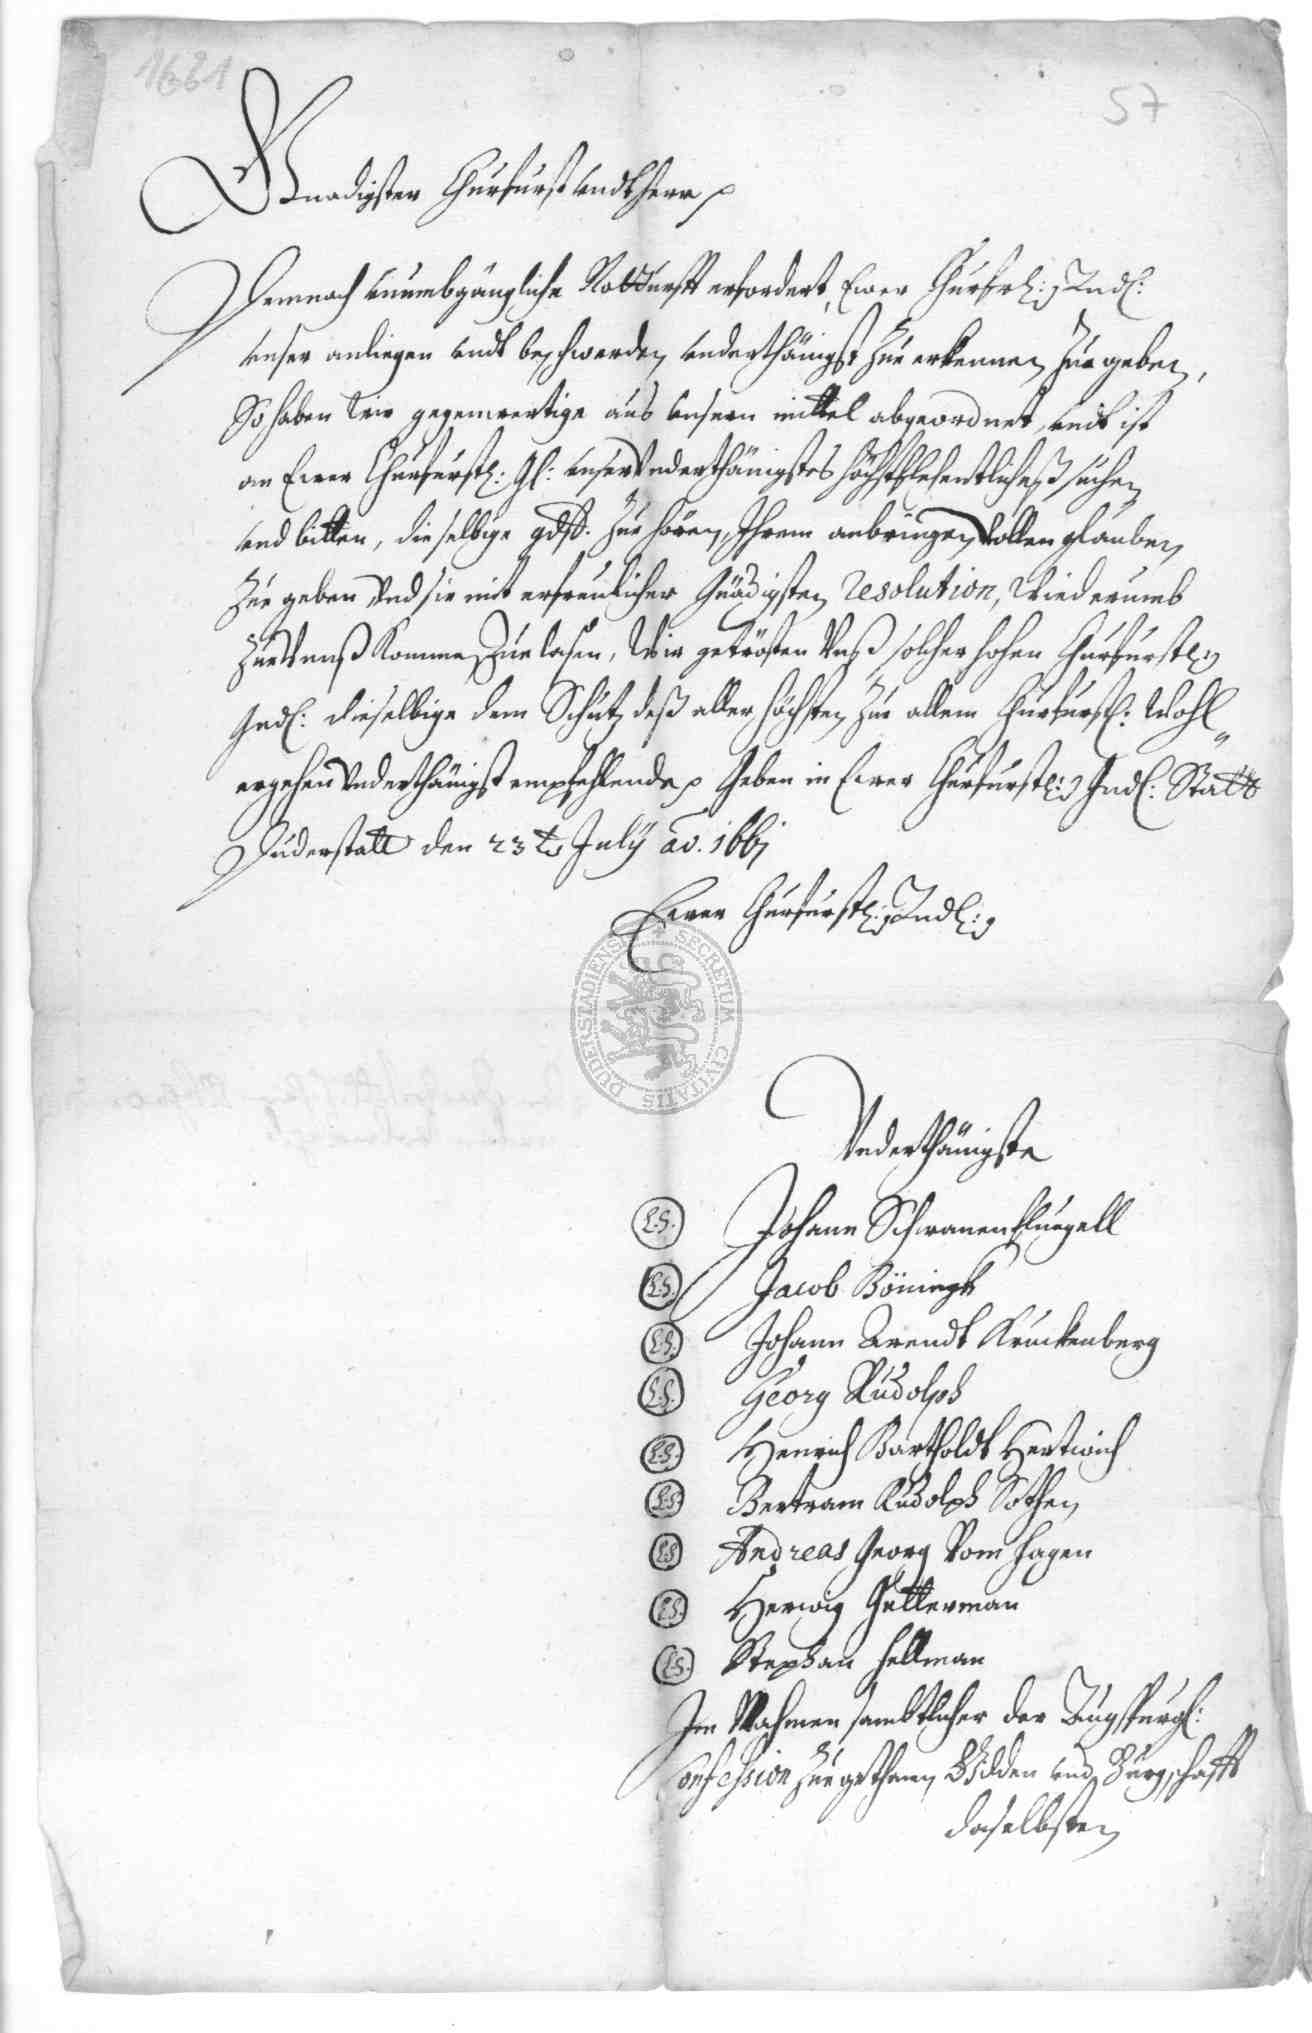 1661
57
Gnadigster Churfurst undt Herr p
Demnach unumbgängliche Notturfft erfordert, Ewer Churfrl: Gndl:
unser anliegen undt beschwerden underthänigst zue erkennen zue geben,
So haben wir gegenwertige aus unsern mittel abgeordnet, undt ist
an Ewer Churfurstl: Gl: unser underthänigstes höchstflehentliches suchen
und bitten, dieselbige gdst. zue hören, Ihrem anbringen vollen glauben
zue geben und sie mit erfreulicher Gnädigsten resolution, wiederumb
zue unß kommen zue lasen, Wir getrösten unß solcher hohen Churfurstl:
Gndl: dieselbige dem Schutz deß aller höchsten zue allem Churfurstl: Wohl
ergehen underthänigst empfehlende p Geben in Ewer Churfurstl: Gndl: Statt
Duderstatt den 23t July ao. 1661
Ewer Churfurstl: Gndl:
DUDERSTADIENSIS SECRETUM CIVITATIS
Underthänigste
L.S. Johann Schwanenfluegell
L.S. Jacob Böningk
L.S. Johann Arendt Kruckenberg
L.S. Georg Rudolph
L.S. Henrich Bartholdt Hertwich
L.S. Bertram Rudolph Sothen
L.S. Andreas Georg Vom Hagen
L.S. Herwig Getterman
L.S. Stephan Hellman
Im Nahmen sambtlicher der Augspurgl:
Confession zue gethanen Gilden und Burgschafft
daselbsten